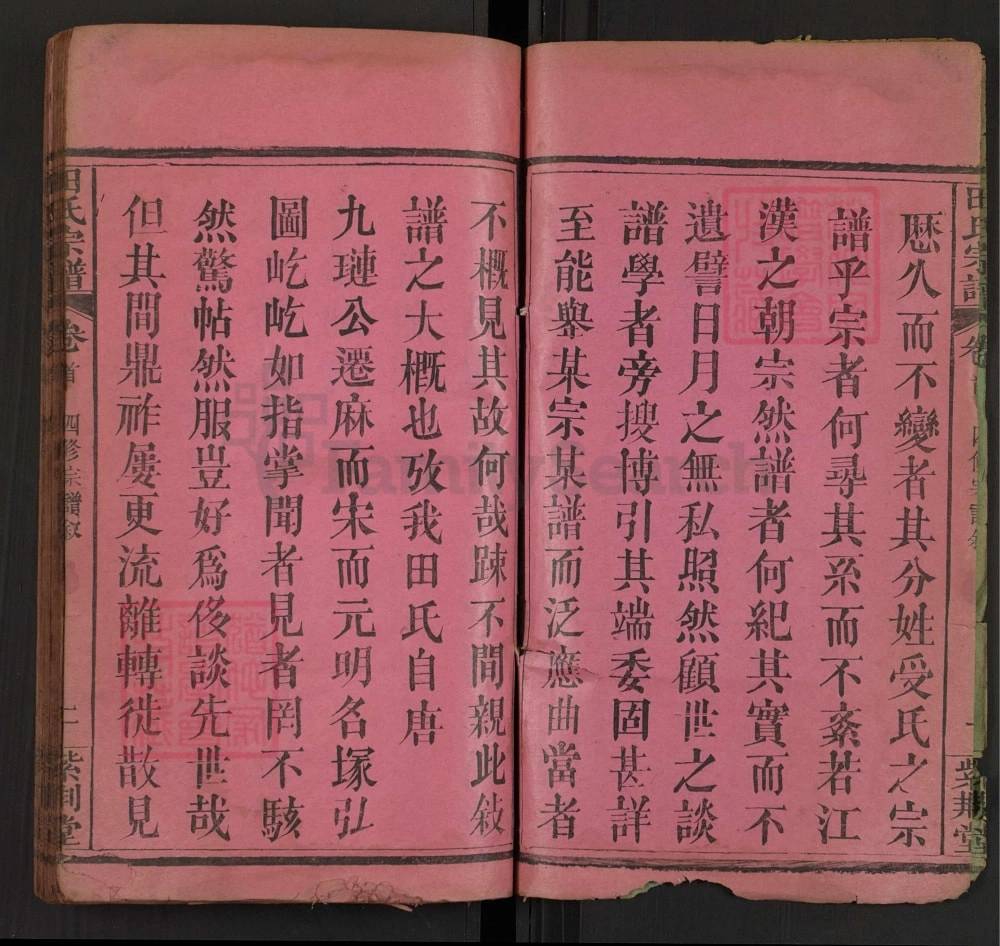 田氏宗譜
卷首
四修宗譜敘
一
紫荆堂
厯久而不變者其分姓受氏之宗
譜乎宗者何尋其系而不紊若江
漢之朝宗然譜者何紀其實而不
遺譬日月之無私照然顧世之談
譜學者旁搜博引其端委固甚詳
至能舉某宗某譜而泛應曲當者
不概見其故何哉踈不間親此敍
譜之大概也攷我田氏自唐
九璉公遷麻而宋而元明名塚弘
圖屹屹如指掌聞者見者罔不駭
然驚帖然服豈好爲侈談先世哉
但其間鼎祚屢更流離轉徙散見
田氏宗譜
卷首
四修宗譜敘
二
紫荆堂
FamilySearch